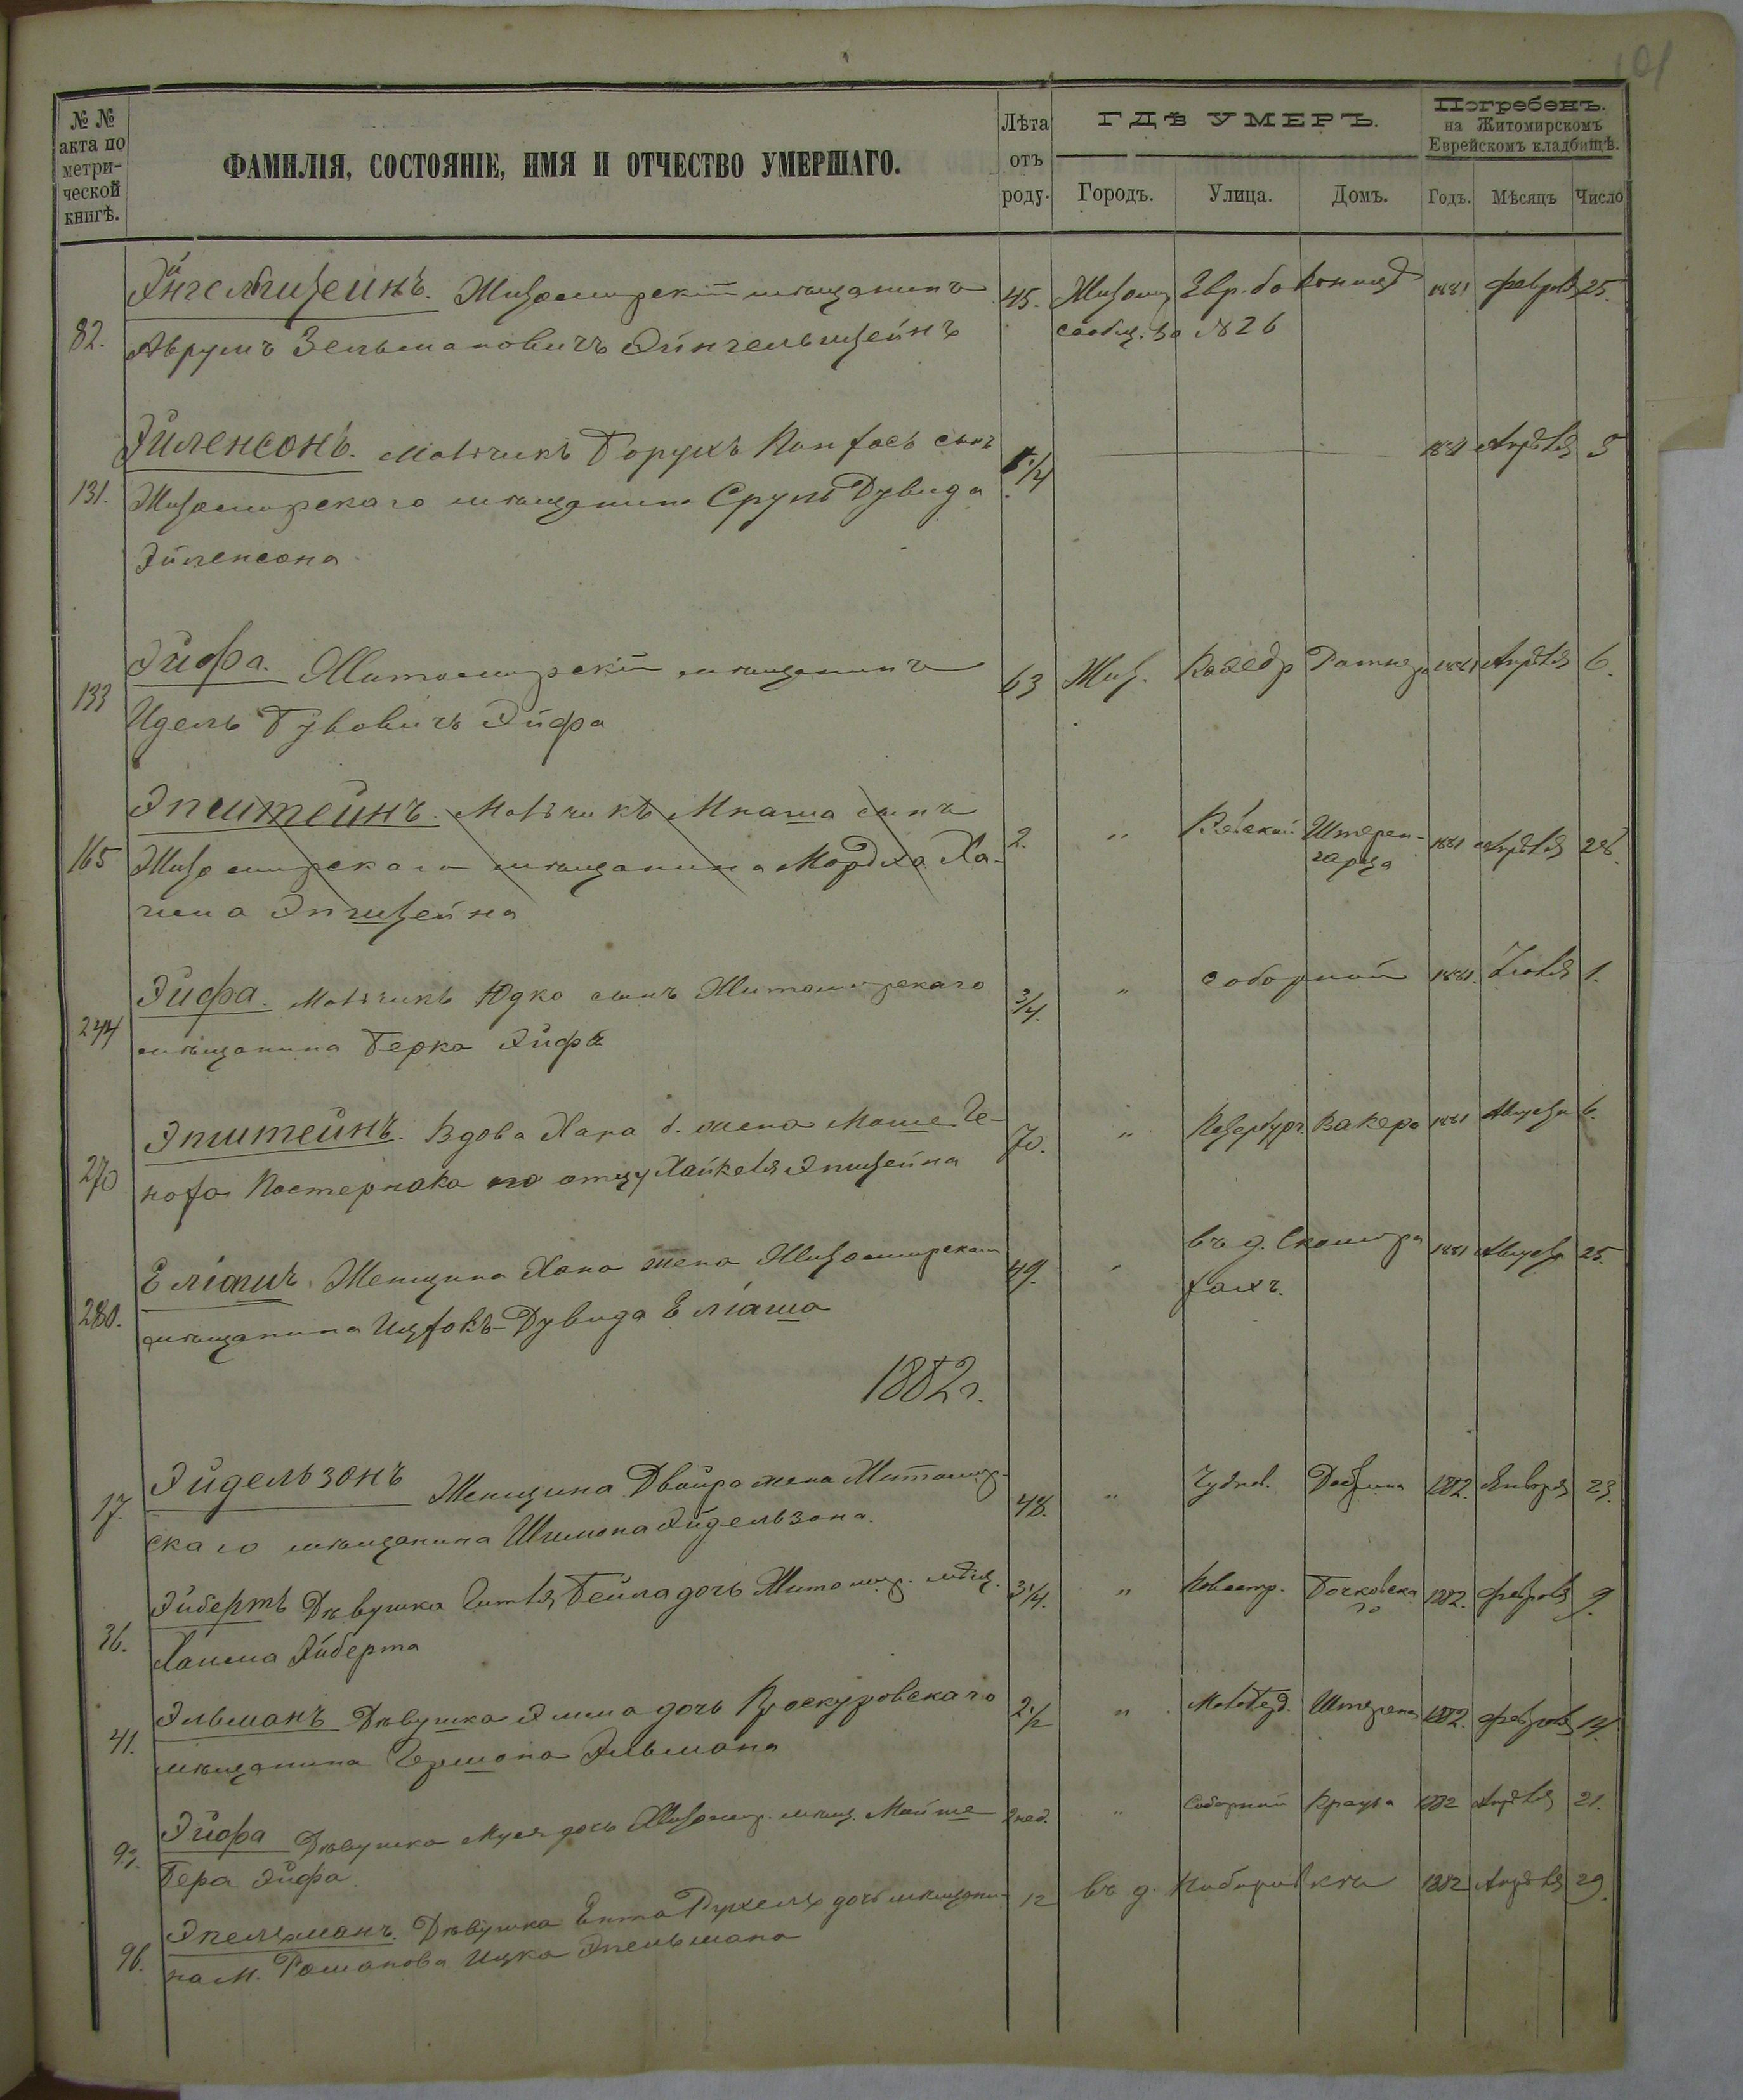 101
№ №
акта по
метри-
ческой
книгѣ.
ФАМИЛІЯ, СОСТОЯНІЕ, ИМЯ И ОТЧЕСТВО УМЕРШАГО.
Лѣта
отъ
роду.
ГДѢ УМЕРЪ.
Городъ. Улица. Домъ.
Погребенъ.
на Житомирскомъ
Еврейскомъ кладбищѣ.
Годъ. Мѣсяцъ Число
Эйнгельштейнъ. Житомирскій мѣщанинъ 45. Житом. Евр. больницѣ 1881 Февраля 25.
82. Аврумъ Зельмановичъ Эйнгельштейнъ № 26
Эйленсонъ. Мальчикъ Борухъ Пинхасъ сынъ 1881 Апрѣля 5
131. Житомирскаго мѣщанина Сруль Дувида
Эйленсона
Эйфа. Житомирскій мѣщанинъ 63 Жит. Каѳедр 1881 Апрѣля 6.
133 Идель Бувовичъ Эйфа
Эпштейнъ. Мальчикъ Мнаша сынъ 2. " Кіевской Штерен- 1881 Апрѣля 28.
165 Житомирскаго мѣщанина Мордха Ха- гарца
има Эпштейна
Эйфа. Мальчикъ Юдко сынъ Житомирскаго 3/4. " Соборной 1881. Іюля 1.
244 мѣщанина Берка Эйфа
Эпштейнъ. Вдова Хана б. жена Моше Ге- 70. " Петербург Вакера 1881 Августа 6.
270 ноха Пастернака по отцу Хайкеля Эпштейна
Еліашъ. Женщина Хана жена Житомирскаго 49. " въ д. Скомора 1881 Августа 25.
280. мѣщанина Ицхокъ-Дувида Еліаша хахъ.
1882 г.
Эйдельзонъ Женщина Двойра жена Житомир- 48. " Чуднов. 1882. Января 23.
17. скаго мѣщанина Шимона Эйдельзона.
Эйбертъ Дѣвушка Гитля Бейла дочь Житомир. мѣщ. 3 1/4. " Новостр. Бочковска 1882. Февраля 9.
го
36. Хаима Эйберта
Эльманъ Дѣвушка Эмма дочь Проскуровскаго 2 1/2 " Штерена 1882. Февраля 14.
41. мѣщанина Германа Эльмана
Эйфа Дѣвушка Муся дочь Житомир. мѣщ. Мойше 2 нед. " Соборной Крауза 1882 Апрѣля 21.
93. Бера Эйфа.
Эпельманъ. Дѣвушка Ента Рухель дочь мѣщани- 12 въ д. 1882 Апрѣля 29.
96. на м. Романова Ицка Эпельмана